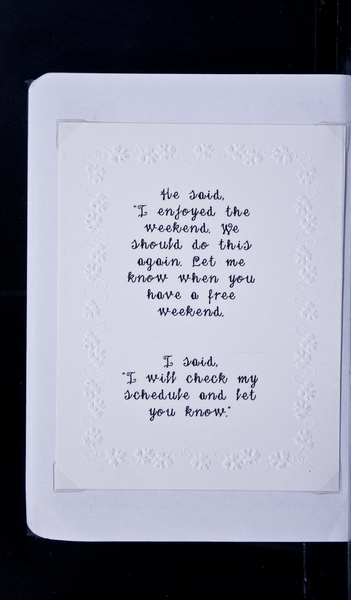 He said,
"I enjoyed the
weekend. We
should do this
again. Let me
know when you
have a free
weekend.
I said,
"I will check my
schedule and let
you know."